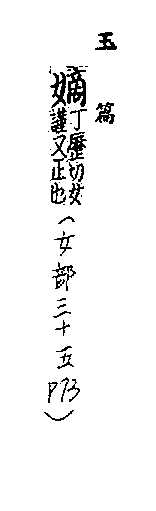 玉篇
嫡丁歷切女
謹又正也（女部三十五P73）